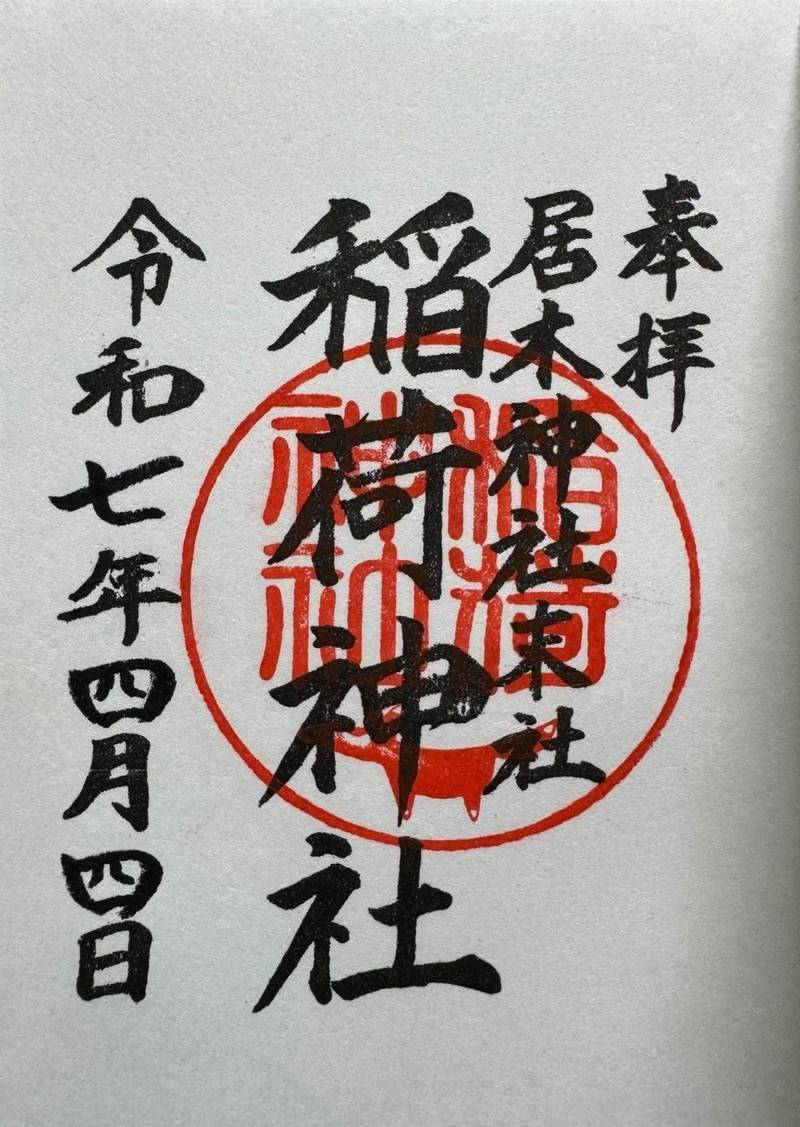 奉拝
居木神社末社
稲荷神社
令和七年四月四日